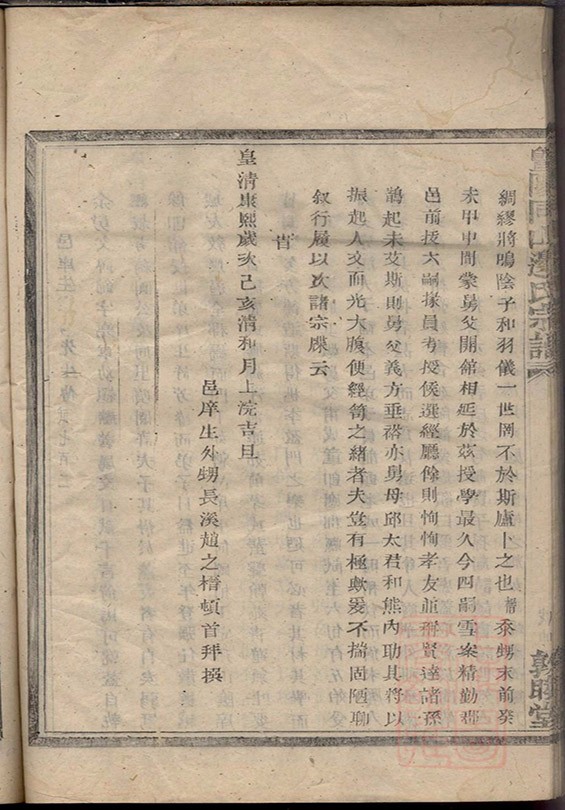 綢繆將鳴陰子和羽儀一世罔不於斯廬卜之也榗忝甥末前癸
未甲申間蒙舅父開館相延於茲授學最久今四嗣雪案精勤郡
邑前拔六嗣掾員考授候選經廳餘則恂恂孝友並稱賢達諸孫
鵲起未艾斯則舅父義方垂裕亦舅母邱太君和熊內助其將以
振起人文而光大腹便經笥之緒者夫豈有極歟爰不揣固陋聊
敘行履以次諸宗牒云
旹
皇清康熙歲次己亥清和月上浣吉旦
邑庠生外甥長溪趙之榗頓首拜撰
氏宗譜
敦睦堂